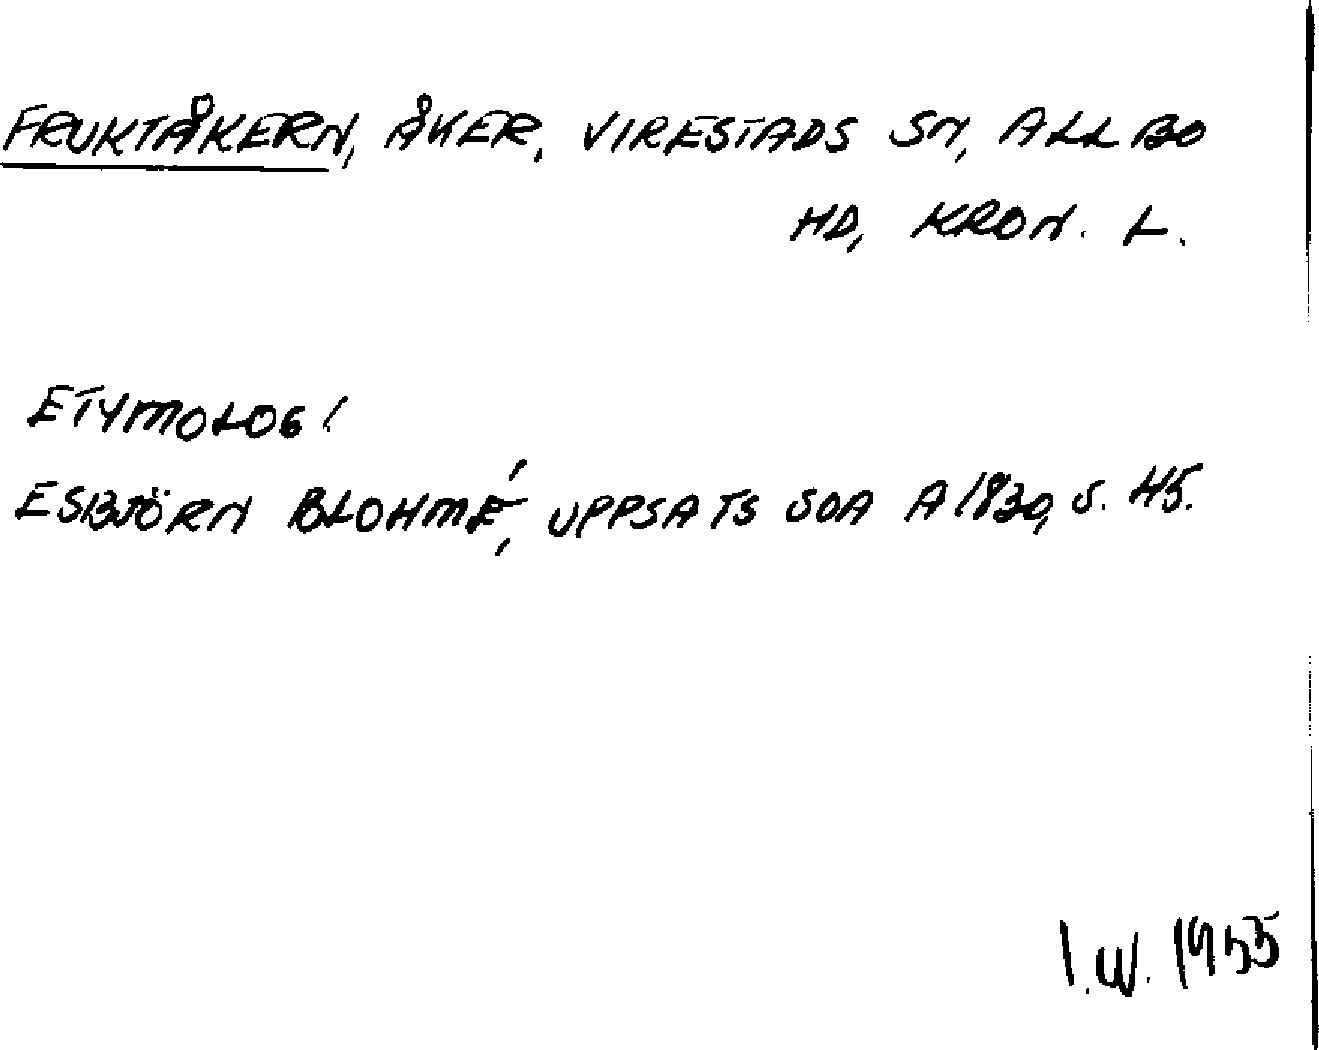 FRUKTÅKERN, ÅKER, VIRESTADS SN, ALLBO
HD, KRON. L.
ETYMOLOGI
ESBJÖRN BLOHMÉ, UPPSATS SOA A1830, S. 45.
I.W. 1955